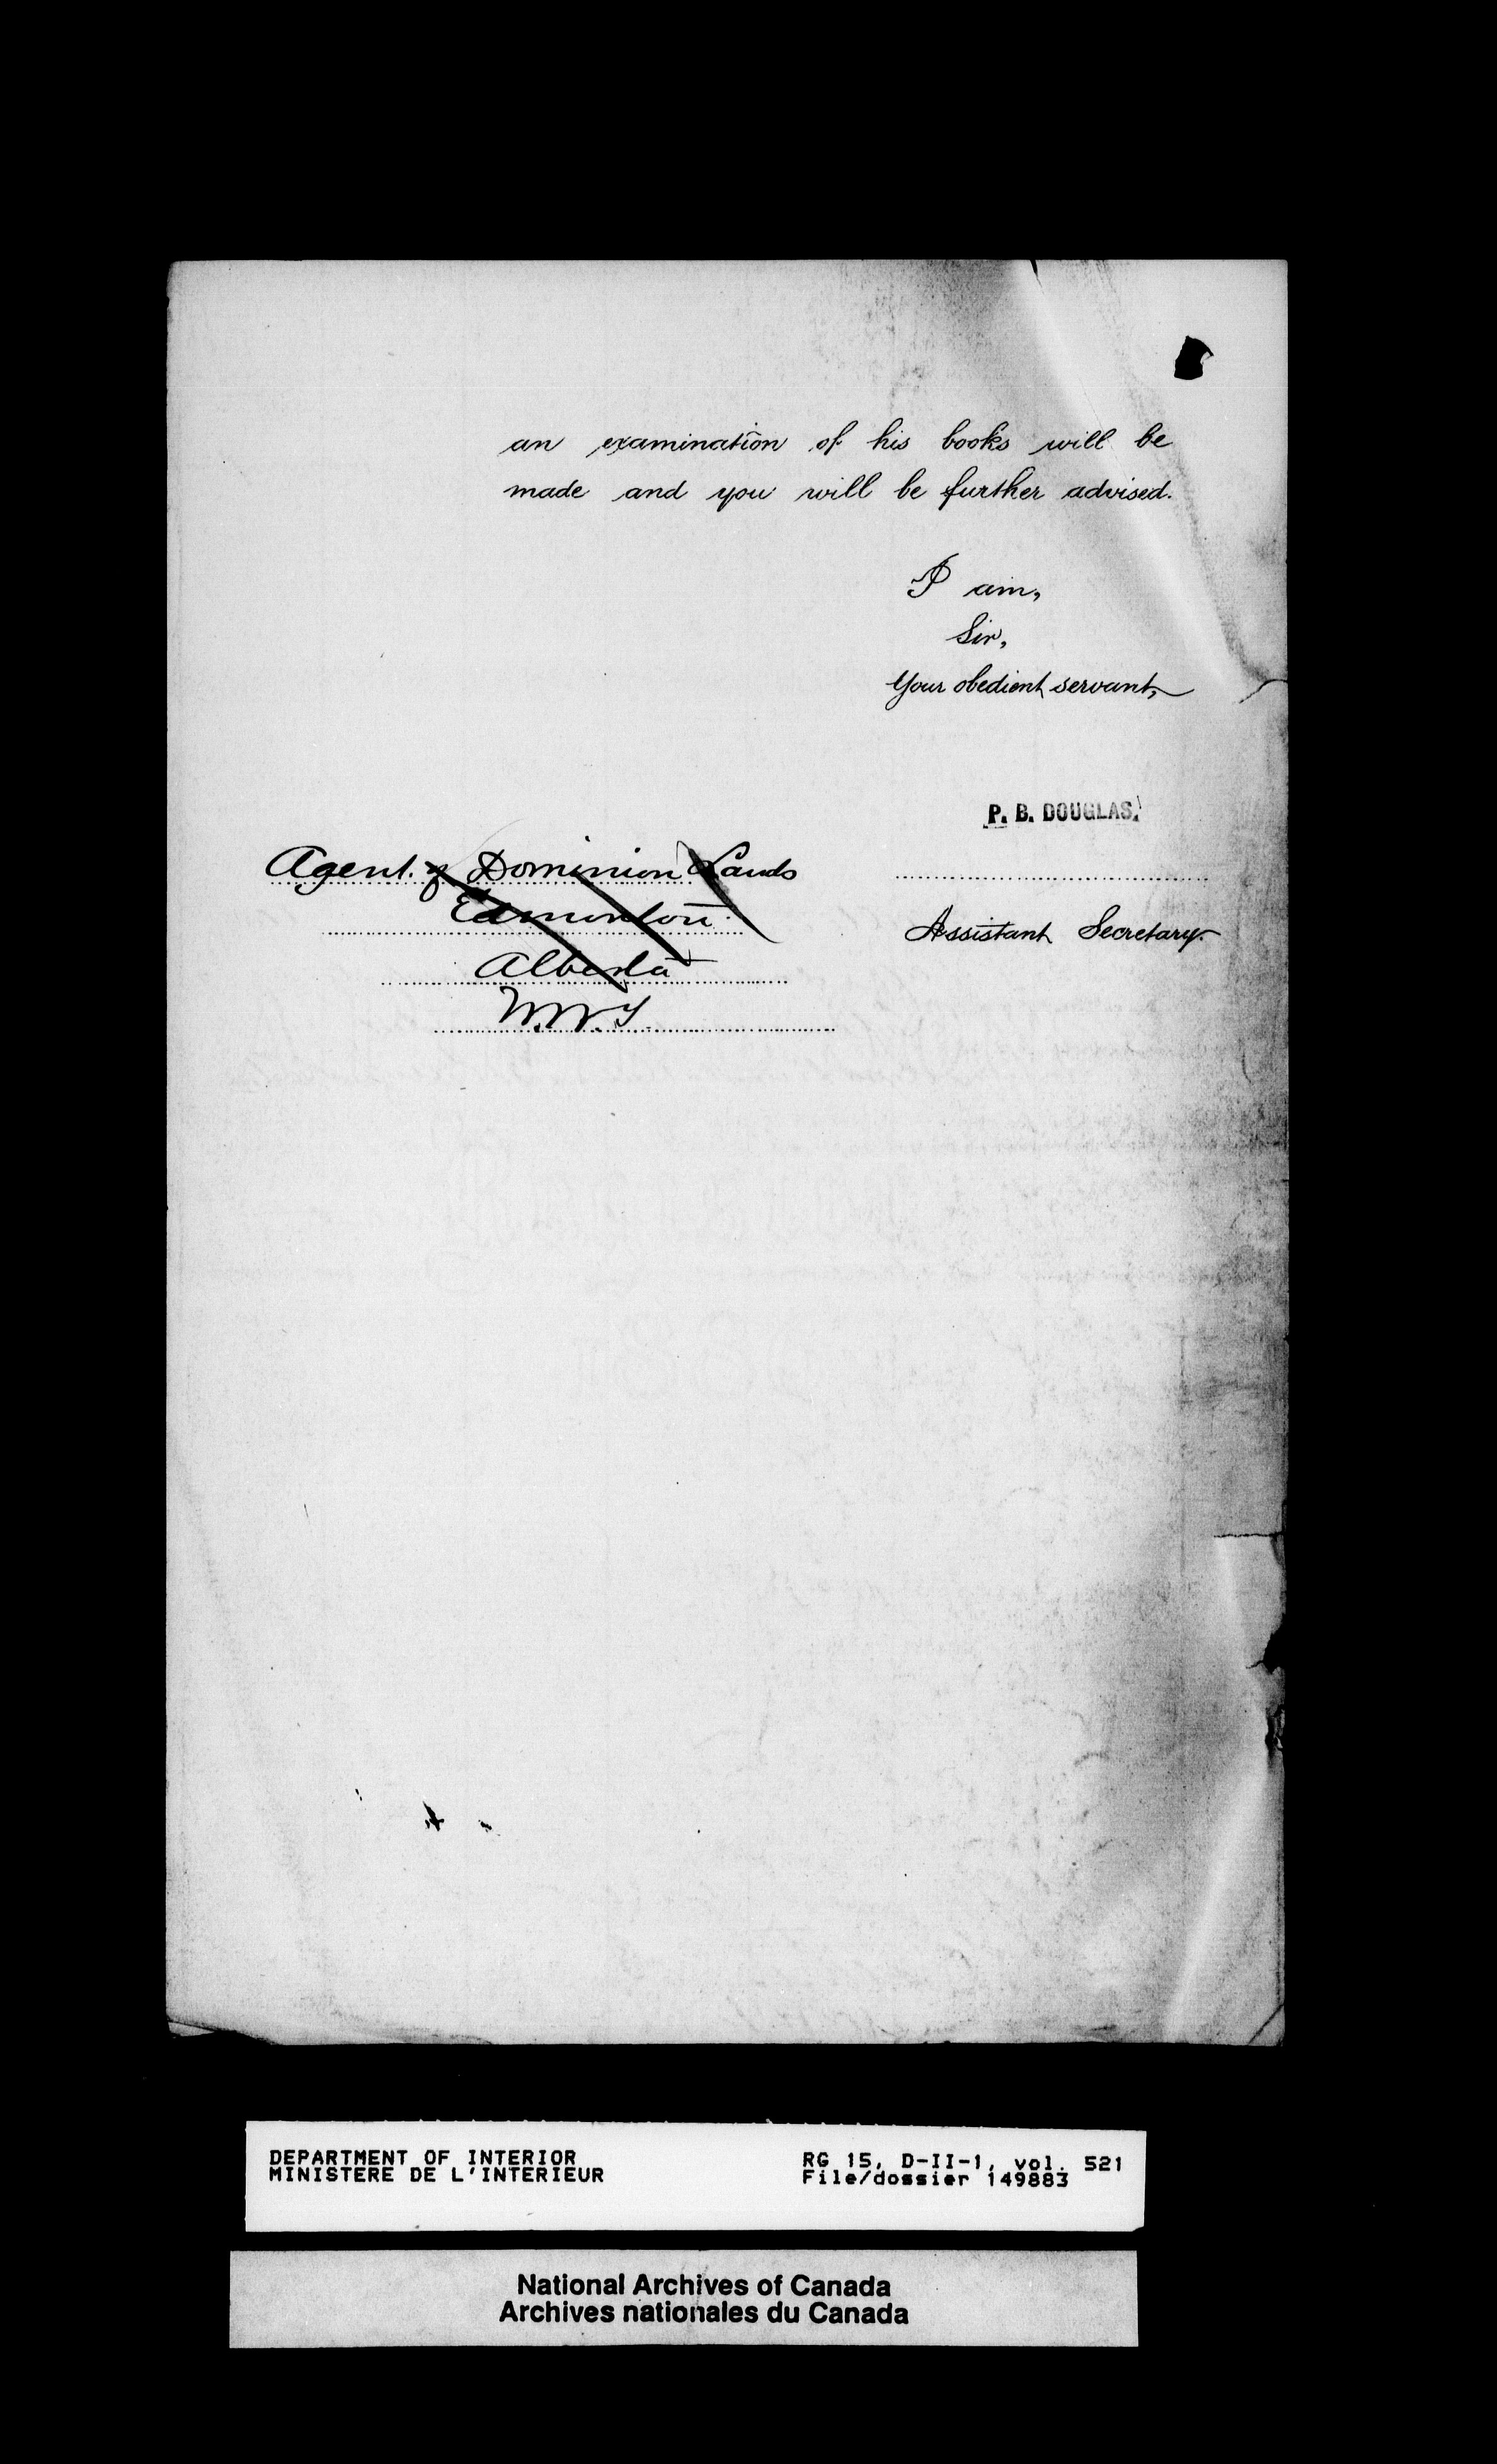 an examination of his books will be
made and you will be further advised.
I am,
Sir,
Your obedient servant,
P. B. DOUGLAS.
Assistant Secretary.
Agent of Dominion Lands
Edmonton
Alberta
N.W.T
DEPARTMENT OF INTERIOR
MINISTERE DE L'INTERIEUR
RG 15, D-II-1, vol. 521
File/dossier 149883
National Archives of Canada
Archives nationales du Canada